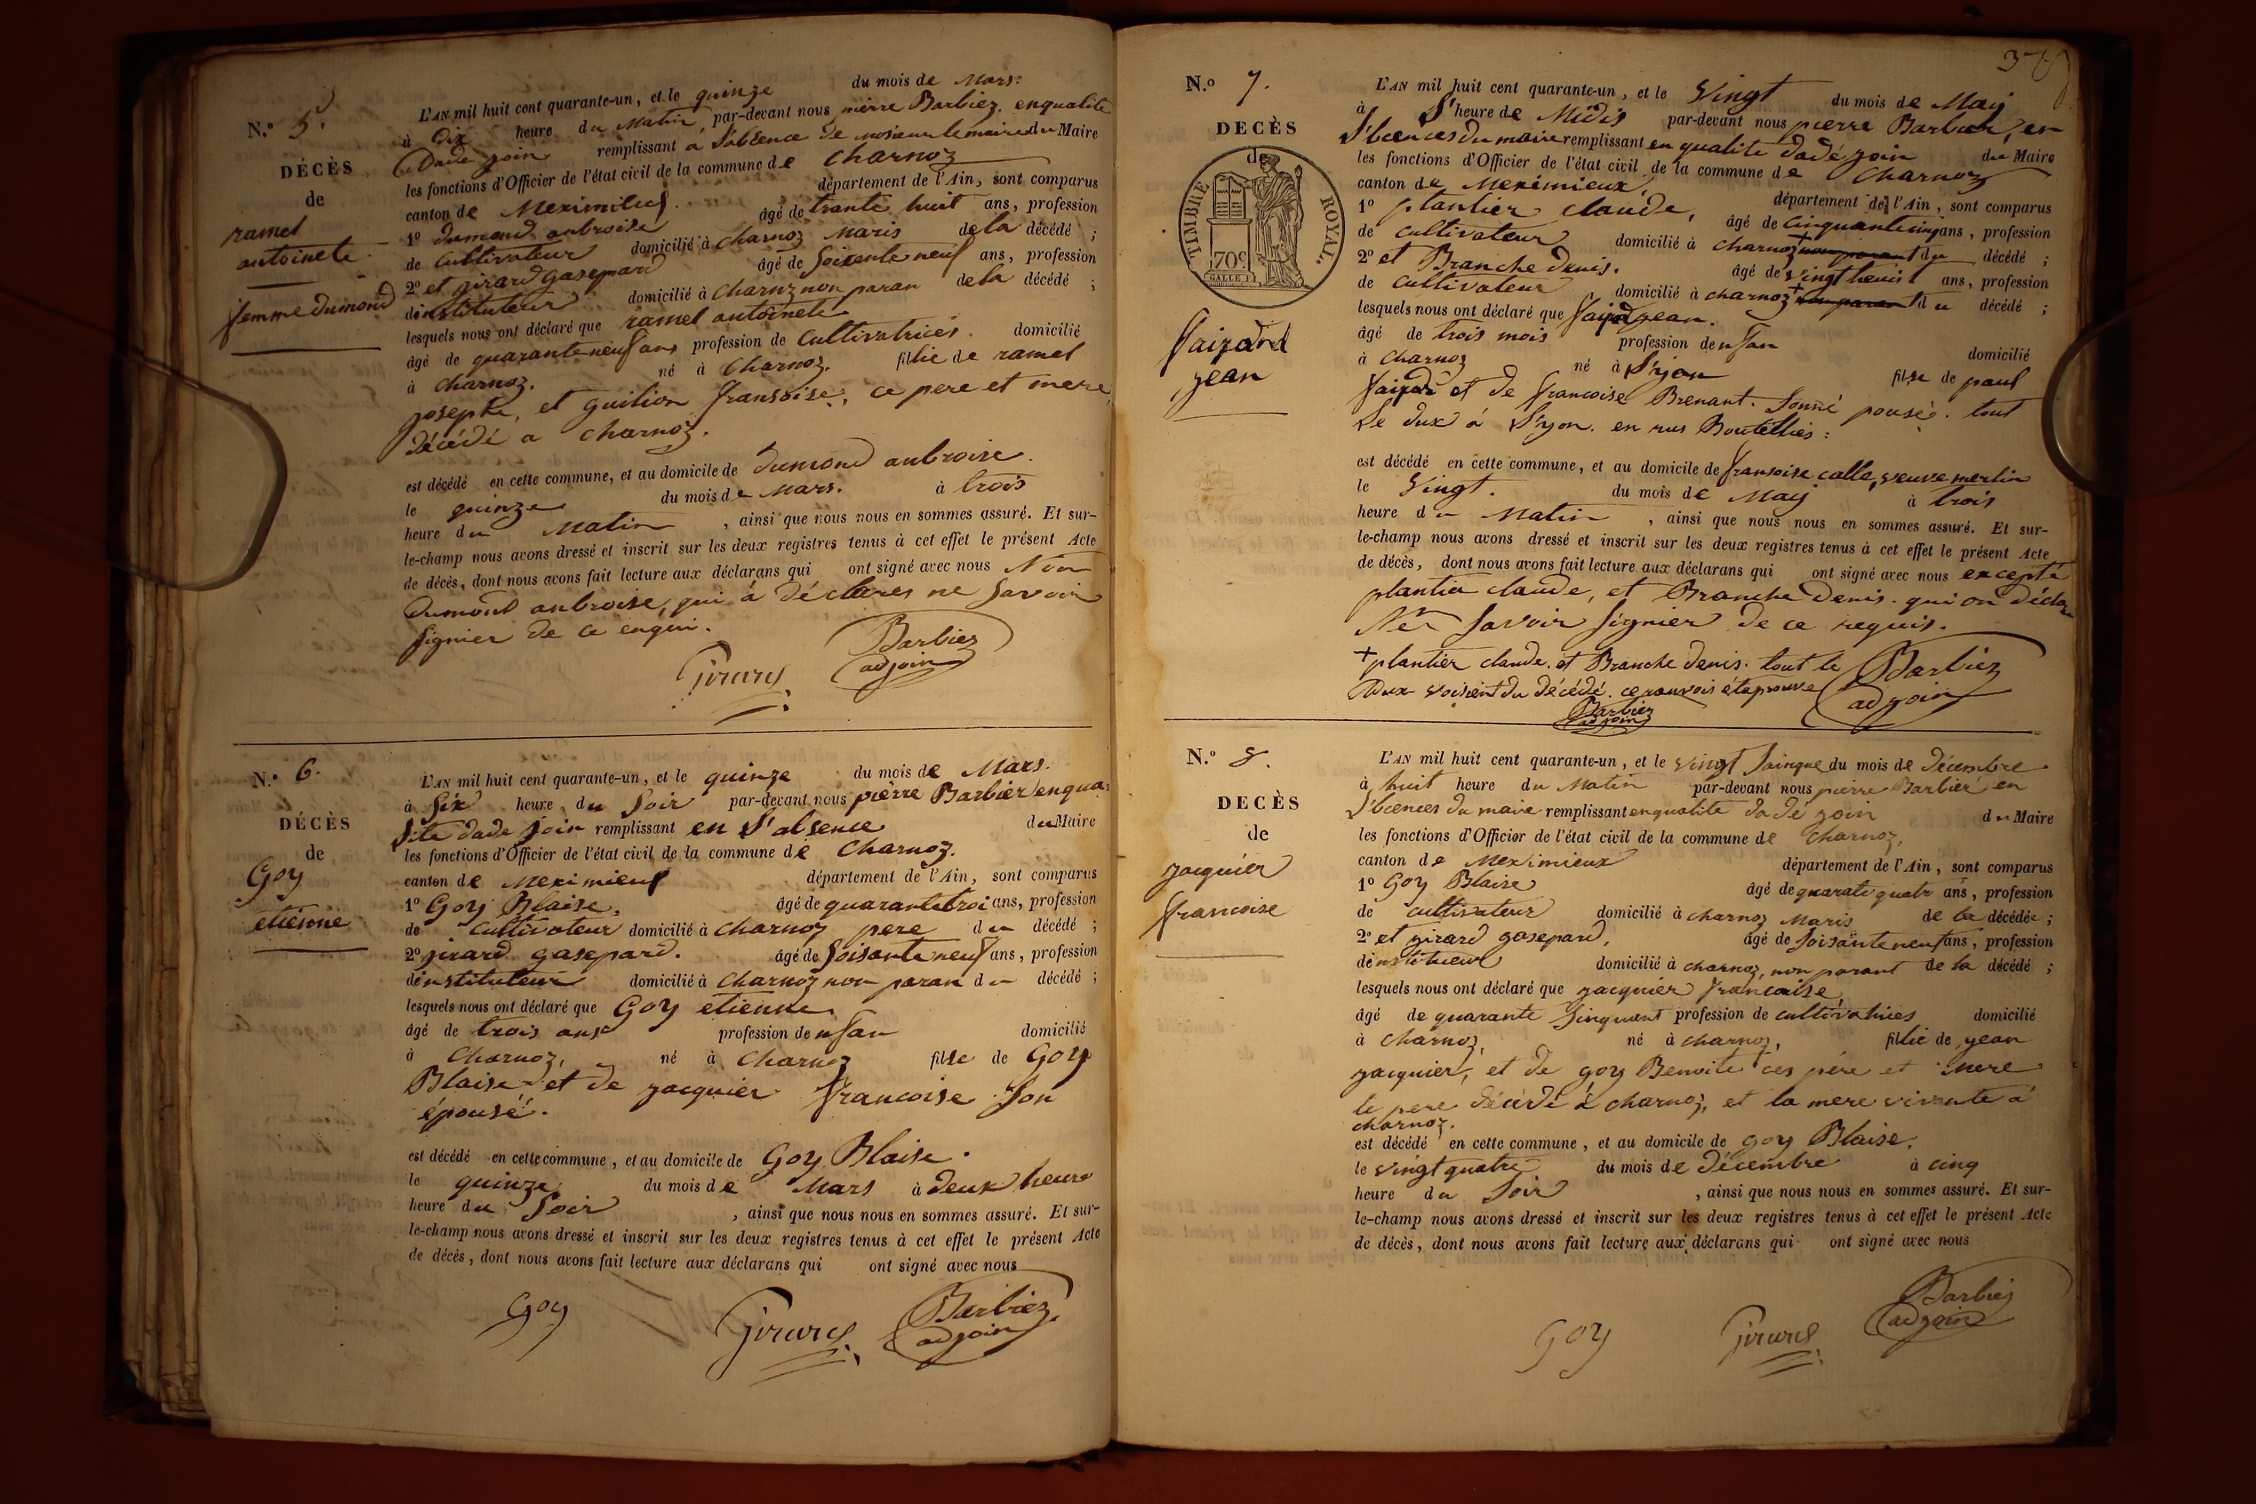 N.º 5.
DÉCÈS
de
ramel
antoinete
femme dumond
L'AN mil huit cent quarante-un, et le quinze du mois de Mars.
à dix heure du Matin, par-devant nous pierre Barbiez enqualite
Dade join remplissant a l'absence de mosieur le maire du Maire
les fonctions d'Officier de l'état civil de la commune de Charnoz
canton de département de l'Ain, sont comparus
1º dumond anbroise âgé de trante huit ans, profession
de Cultivateur domicilié à Charnoz Maris de la décédé ;
2º et girard gasepard âgé de Soixente neuf ans, profession
dinstituteur domicilié à Charnoz non paran de la décédé ;
lesquels nous ont déclaré que ramel antoinete
âgé de quarante neuf ans profession de Cultivatrices domicilié
à Charnoz. né à Charnoz. fillie de ramel
josepte, et guilion fransoise, ce pere et mere
décédé a charnoz.
est décédé en cette commune, et au domicile de dumond anbroise.
le quinze du mois de Mars. à trois
heure du Matin, ainsi que nous nous en sommes assuré. Et sur-
le-champ nous avons dressé et inscrit sur les deux registres tenus à cet effet le présent Acte
de décès, dont nous avons fait lecture aux déclarans qui ont signé avec nous Non
dumond anbroise, qui á déclares ne Savoir
signier de ce enquri.
Girard
Barbiez
adjoin
N.º 6.
DÉCÈS
de
Goy
etienne
L'AN mil huit cent quarante-un, et le quinze du mois de Mars.
à Six heure du Soir par-devant nous pierre Barbier enqua-
lite dade join remplissant en l'absence du Maire
les fonctions d'Officier de l'état civil de la commune de Charnoz.
canton de département de l'Ain, sont comparus
1º Goy Blaise, âgé de quarante troi ans, profession
de Cultivateur domicilié à Charnoz pere du décédé ;
2º girard gasepard. âgé de Soisante neuf ans, profession
dinstituteur domicilié à Charnoz non paran du décédé ;
lesquels nous ont déclaré que Goy etienne
âgé de trois ans profession de nfan domicilié
à Charnoz, né à Charnoz fils de Goy
Blaise et de jacquier francoise Son
épousé.
est décédé en cette commune, et au domicile de Goy Blaise.
le quinze du mois de Mars à deux heure
heure du Soir, ainsi que nous nous en sommes assuré. Et sur-
le-champ nous avons dressé et inscrit sur les deux registres tenus à cet effet le présent Acte
de décès, dont nous avons fait lecture aux déclarans qui ont signé avec nous
Goy
Girard
Barbiez
adjoin
N.º 7.
DECÈS
de
TIMBRE ROYAL.
70c
jean
L'AN mil huit cent quarante-un, et le Vingt du mois de May
à l'heure de Midis par-devant nous pierre Barbier, en
l'bcences du maire remplissant en qualite dadé join du Maire
les fonctions d'Officier de l'état civil de la commune de Charnoz
canton de Meximieux, département de l'Ain, sont comparus
1º plantier claude, âgé de cinquante cinq ans, profession
de cultivateur domicilié à charnoz + non parant du décédé ;
2º et Branche denis. âgé de vingt heuit ans, profession
de Cultivateur domicilié à charnoz + non parant du décédé ;
lesquels nous ont déclaré que jean.
âgé de trois mois profession de nfan domicilié
à Charnoz né à l'yon fils de paul
et de francoise Brenant. Sonné pousé. tout
le dux á l'yon. en rus Boutellies :
est décédé en cette commune, et au domicile de fransoise calle, veuve merlin
le Vingt. du mois de May à trois
heure du Matin, ainsi que nous nous en sommes assuré. Et sur-
le-champ nous avons dressé et inscrit sur les deux registres tenus à cet effet le présent Acte
de décès, dont nous avons fait lecture aux déclarans qui ont signé avec nous excepté
plantier claude, et Branche denis. qui on déclare
Ne Savoir Signier de ce requis.
+ plantier claude. et Branche denis. tout le
dux voisient du décédé. ce ranvois étaprouve
Barbiez
adjoin
Barbiez
adjoin
N.º 8.
DECÈS
de
jacquier
francoise
L'AN mil huit cent quarante-un, et le vingt Sainque du mois de Décembre
à huit heure du Matin par-devant nous pierre Barbier en
l'bcences du maire remplissant enqualite dadé join du Maire
les fonctions d'Officier de l'état civil de la commune de Charnoz,
canton de Meximieux département de l'Ain, sont comparus
1º Goy Blaise âgé de quarate quatr ans, profession
de cultivateur domicilié à charnoz Maris de la décédée ;
2º et girard gasepard, âgé de soisante neuf ans, profession
dinstituteur domicilié à charnoz, non parant de la décédé ;
lesquels nous ont déclaré que jacquier francoise,
âgé de quarante profession de cultivatrices domicilié
à charnoz, né à charnoz, fillie de jean
jacquier, et de goy Benoite ces père et mere
le pere décédé á charnoz, et la mere vivante á
charnoz.
est décédé en cette commune, et au domicile de goy Blaise.
le vingt quatre du mois de décembre à cinq
heure du Soir, ainsi que nous nous en sommes assuré. Et sur-
le-champ nous avons dressé et inscrit sur les deux registres tenus à cet effet le présent Acte
de décès, dont nous avons fait lecture aux déclarans qui ont signé avec nous
Goy
Girard
Barbiez
adjoin